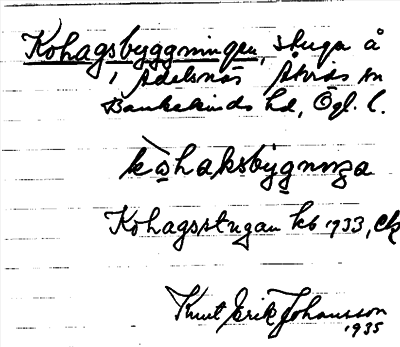 Kohagsbyggningen, stuga å
Adelsnäs Åtvids sn
Bankekinds hd, Ögl. l.
kòhaksbygnıŋa
Kohagsstugan kb 1933, ek
Knut Erik Johansson
1935